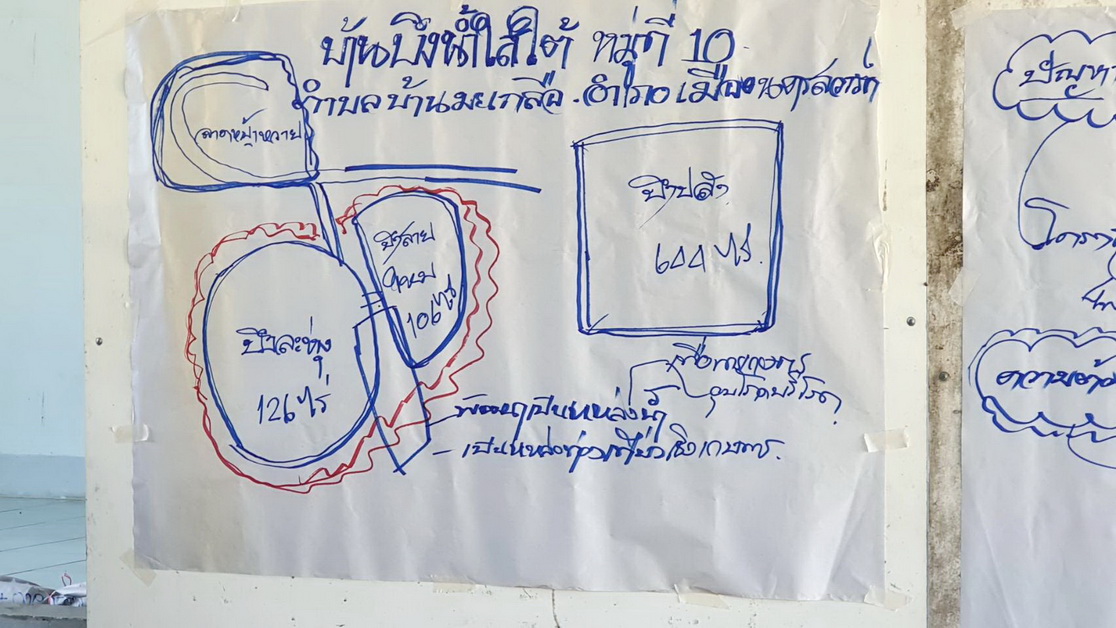 บ้านบึงน้ำใสใต้ หมู่ที่ 10
ตำบลบ้านมะเกลือ. อำเภอเมืองนครสวรรค์
ลาดหญ้าหวาย
ป่าสาย
106 ไร่
ป่าละหุ่ง
126 ไร่
600 ไร่.
เพื่อการเกษตร
อุปโภคบริโภค
- พัฒนาเป็นแหล่งน้ำ
- เป็นแหล่งท่องเที่ยวเชิงเกษตร.
ปัญหา
โครงการ
ความต้อง